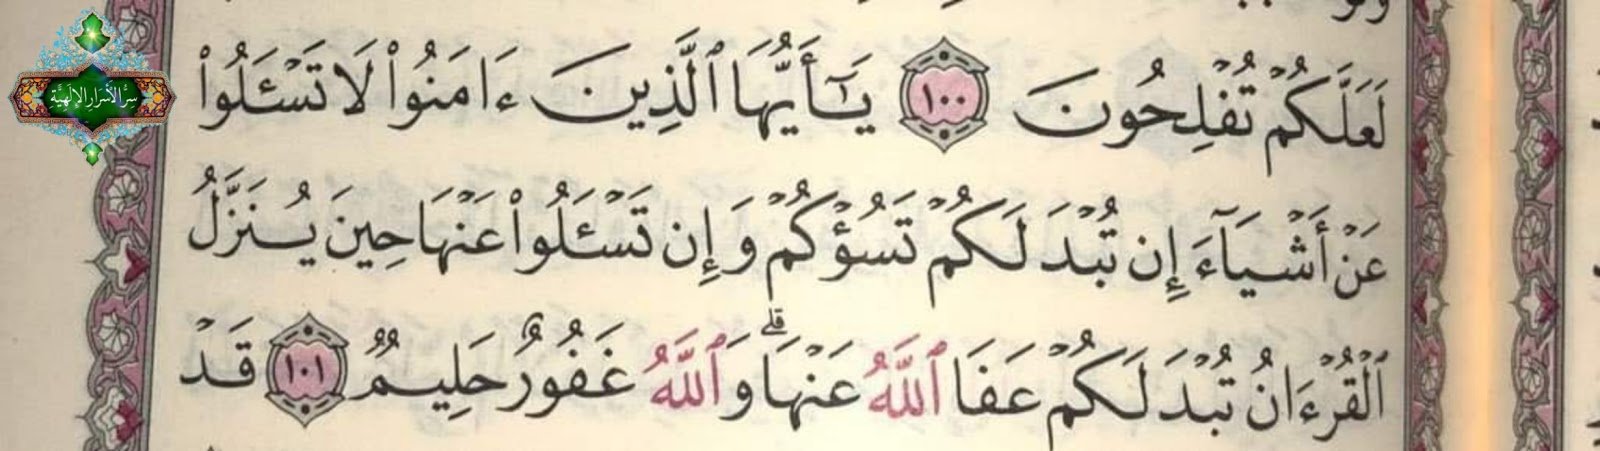 سر الأسرار الإلهية
لَعَلَّكُمْ تُفْلِحُونَ ١٠٠ يَـٰٓأَيُّهَا ٱلَّذِينَ ءَامَنُوا۟ لَا تَسْـَٔلُوا۟
عَنْ أَشْيَآءَ إِن تُبْدَ لَكُمْ تَسُؤْكُمْ وَإِن تَسْـَٔلُوا۟ عَنْهَا حِينَ يُنَزَّلُ
ٱلْقُرْءَانُ تُبْدَ لَكُمْ عَفَا ٱللَّهُ عَنْهَا ۗ وَٱللَّهُ غَفُورٌ حَلِيمٌ ١٠١ قَدْ